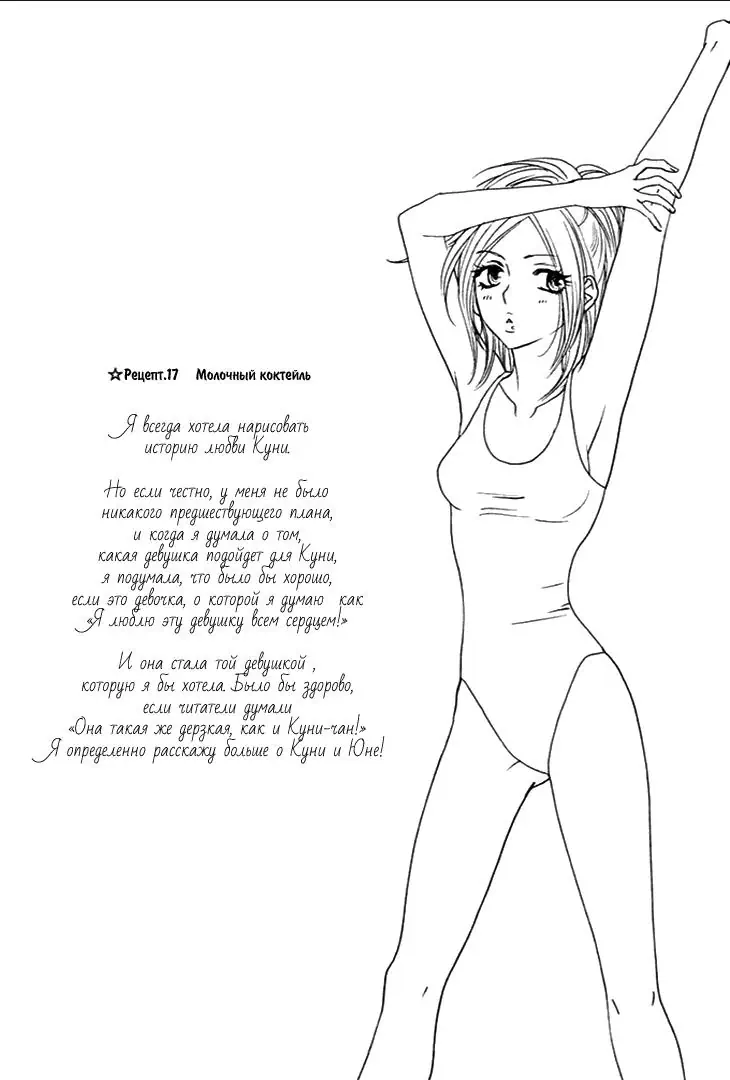 ☆Рецепт.17 Молочный коктейль
Я всегда хотела нарисовать
историю любви Куни.
Но если честно, у меня не было
никакого предшествующего плана,
и когда я думала о том,
какая девушка подойдет для Куни,
я подумала, что было бы хорошо,
если это девочка, о которой я думаю как
«Я люблю эту девушку всем сердцем!»
И она стала той девушкой ,
которую я бы хотела. Было бы здорово,
если читатели думали
«Она такая же дерзкая, как и Куни-чан!»
Я определенно расскажу больше о Куни и Юне!